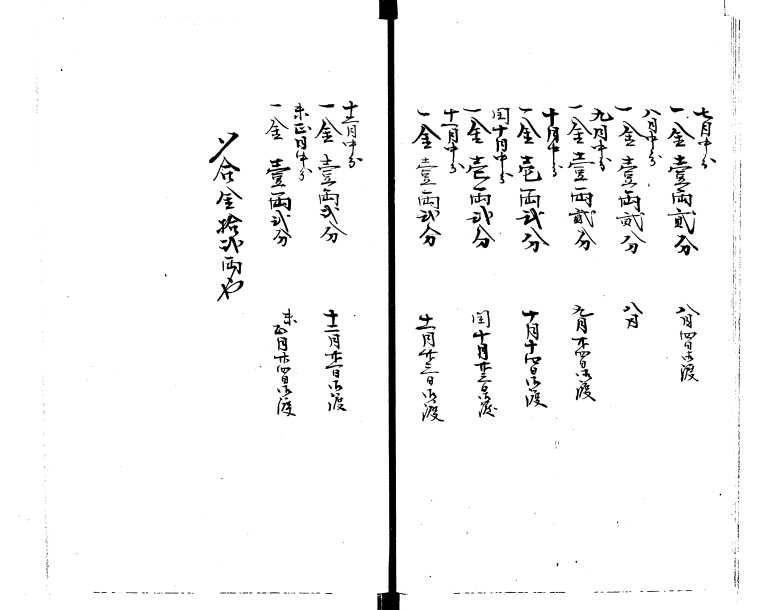 七月中分
一金壹両貳分　八月四日御渡
八月中分
一金壹両貳分　八月
九月中分
一金壹両貳分　九月廿四日御渡
十月中分
一金壱両弐分　十月十四日御渡
閏十月中分
一金壱両弐分　閏十月廿三日御渡
十一月中分
一金壹両弐分　十一月廿三日御渡
十二月中分
一金壹両弐分　十二月廿二日御渡
未正月中分
一金壹両弐分　未正月廿四日御渡
〆合金拾弐両也